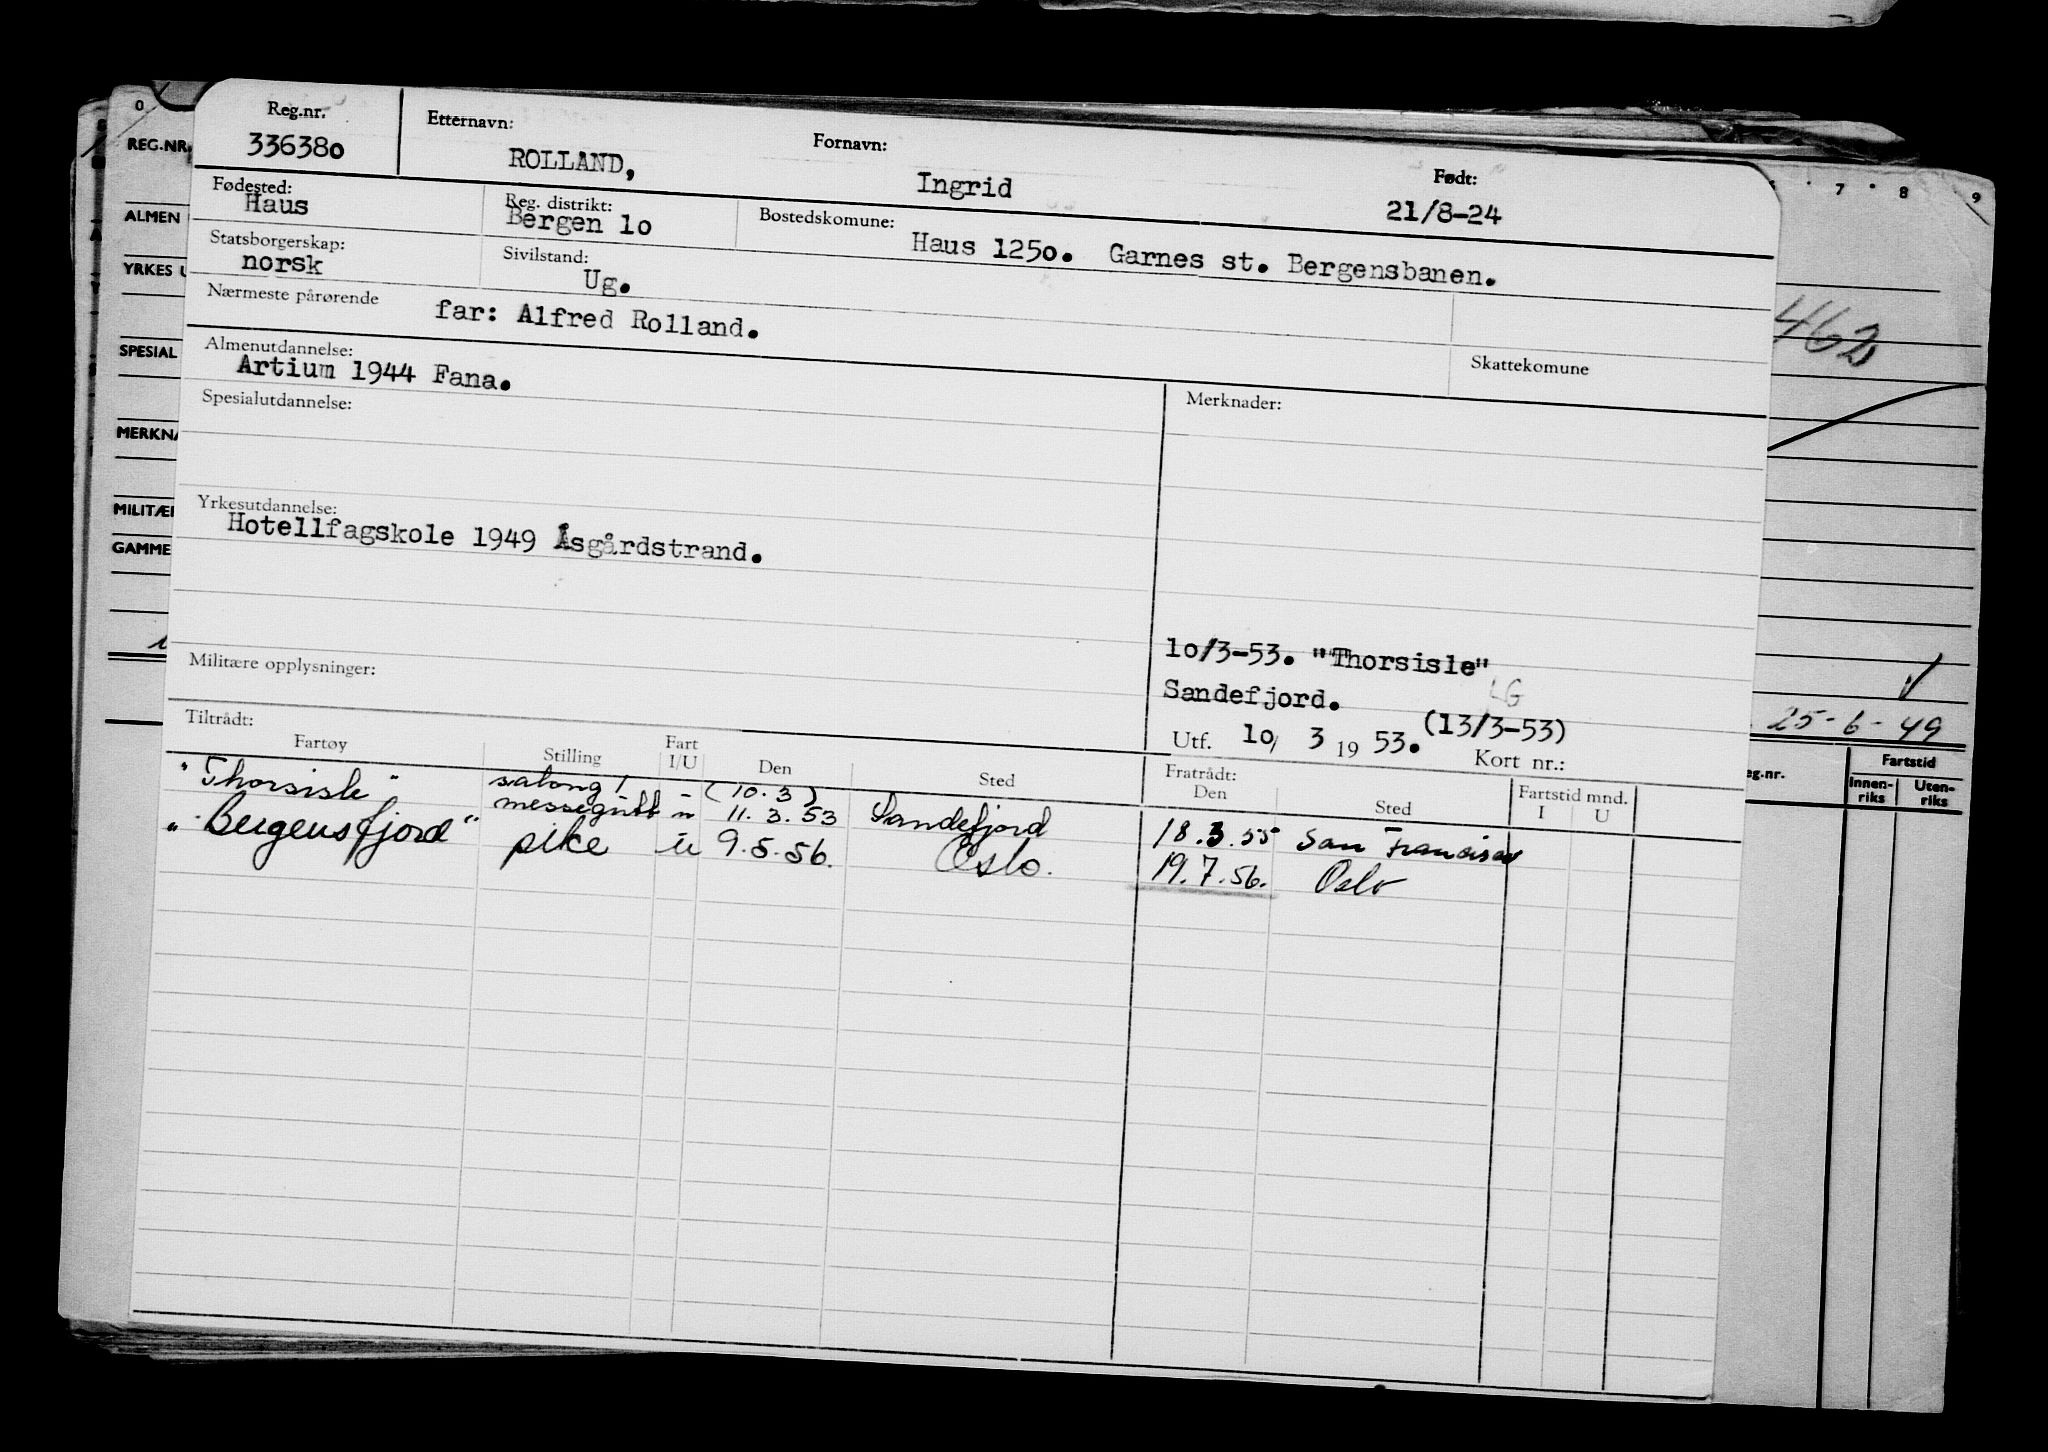 Reg.nr. Etternavn: Fornavn: Født:
336380 ROLLAND, Ingrid 21/8-24
Fødested: Reg. distrikt: Bostedskomune:
Haus Bergen 10 Haus 1250. Garnes st. Bergensbanen.
Statsborgerskap: Sivilstand:
norsk Ug.
Nærmeste pårørende far: Alfred Rolland.
Almenutdannelse: Skattekomune
Artium 1944 Fana.
Spesialutdannelse: Merknader:
Yrkesutdannelse:
Hotellfagskole 1949 Åsgårdstrand.
10/3-53. "Thorsisle"
Sandefjord.
LG
Militære opplysninger:
(13/3-53)
Utf. 10/ 3 19 53. Kort nr.:
Tiltrådt: Fratrådt:
Fartøy Stilling Fart I/U Den Sted Den Sted Fartstid mnd. I U
"Thorsisle" salong / - (10.3)
messegutt u 11.3.53 Sandefjord 18.3.55 San Francisco
"Bergensfjord" pike u 9.5.56. Oslo. 19.7.56. Oslo
0
REG.NR.
ALMEN
YRKES U
SPESIAL
MERKNA
MILITÆR
GAMME
7 8 9
462
25-6-49
eg.nr. Fartstid
Innen-riks Uten-riks